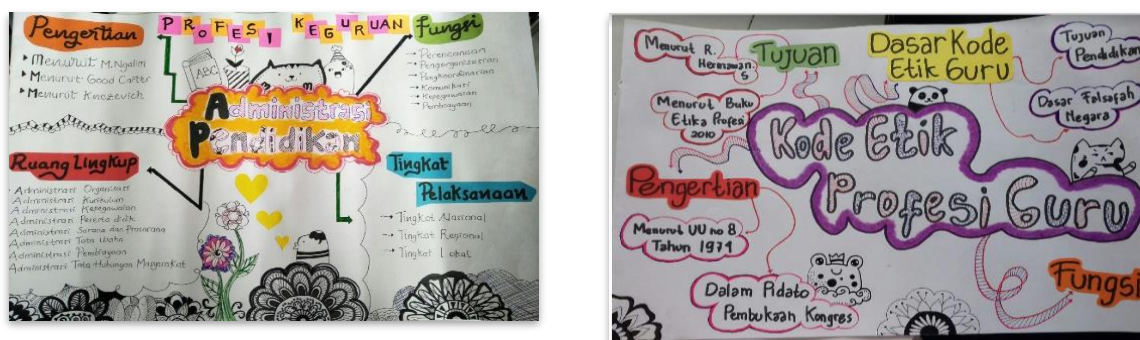 PROFESI KEGURUAN
Pengertian
Menurut M.Ngalim
Menurut Good Carter
Menurut Knezevich
Fungsi
Perencanaan
Pengorganisasian
Pengkoordinasian
Komunikasi
Kepegawaian
Pembiayaan
ABC
Administrasi
Pendidikan
Ruang Lingkup
Administrasi Organisasi
Administrasi Kurikulum
Administrasi Kepegawaian
Administrasi Peserta didik
Administrasi Sarana dan Prasarana
Administrasi Tata Usaha
Administrasi Pembiayaan
Administrasi Tata Hubungan Masyarakat
Tingkat
Pelaksanaan
Tingkat Nasional
Tingkat Regional
Tingkat Lokal
Menurut R.
Hermawan.
S
Tujuan
Menurut Buku
Etika Profesi
2010
Dasar Kode
Etik Guru
Tujuan
Pendidikan
Dasar Falsafah
Negara
Kode Etik
Profesi Guru
Pengertian
Menurut UU no 8
Tahun 1974
Dalam Pidato
Pembukaan Kongres
Fungsi